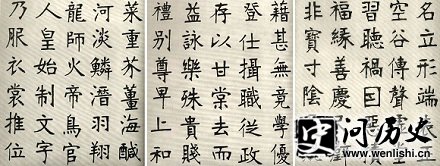 菜重芥薑海鹹
河淡鱗潛羽翔
龍師火帝鳥官
人皇始制文字
乃服衣裳推位
籍甚無竟學優
登仕攝職從政
存以甘棠去而
益詠樂殊貴賤
禮別尊卑上和
名立形端
空谷傳聲
習聽禍囙
福緣善慶
非寶寸陰
史问历史
www.wenlishi.cn